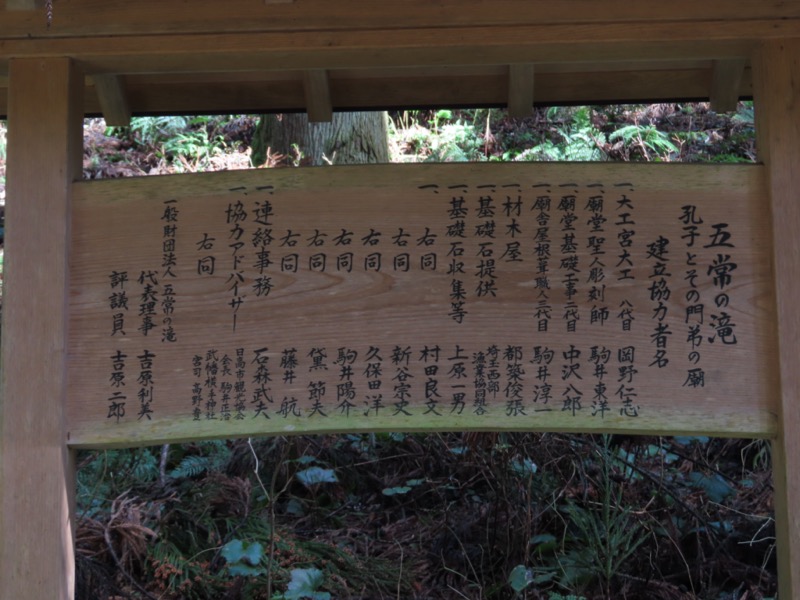 五常の滝
孔子とその門弟の廟
建立協力者名
一、大工宮大工 八代目 岡野仁志
一、廟堂聖人彫刻師 駒井東洋
一、廟堂基礎工事二代目 中沢八郎
一、廟舎屋根葺職人三代目 駒井淳一
一、材木屋 都築俊張
一、基礎石提供 埼玉西部漁業協同組合
一、基礎石収集等 上原一男
一、右同 村田良文
右同 新谷宗文
右同 久保田洋
右同 駒井陽介
右同 黛節夫
右同 藤井航
一、連絡事務 石森武夫
一、協力アドバイザー 日高市観光協会 会長 駒井正治
右同 武幡横手神社 宮司 高野
一般財団法人 五常の滝
代表理事 吉原利英
評議員 吉原二郎